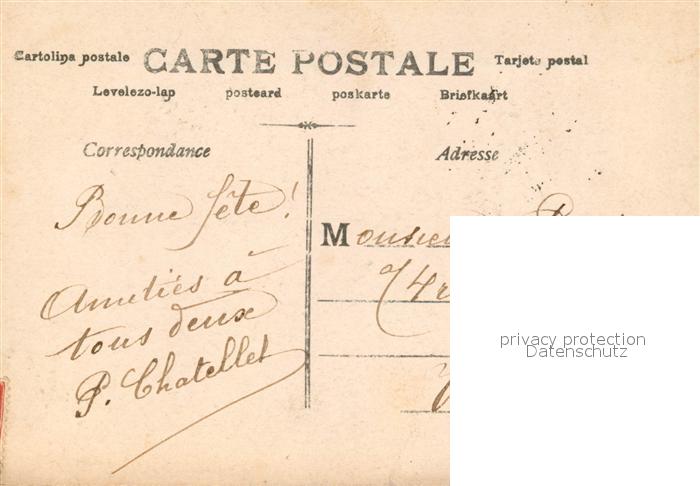 Cartolina postale CARTE POSTALE Tarjeta postal
Levelezo-lap postcard poskarte Briefkaart
Correspondance Adresse
Bonne fête!
Amitiés à
tous deux
P. Chatellet
Monsieu
privacy protection
Datenschutz